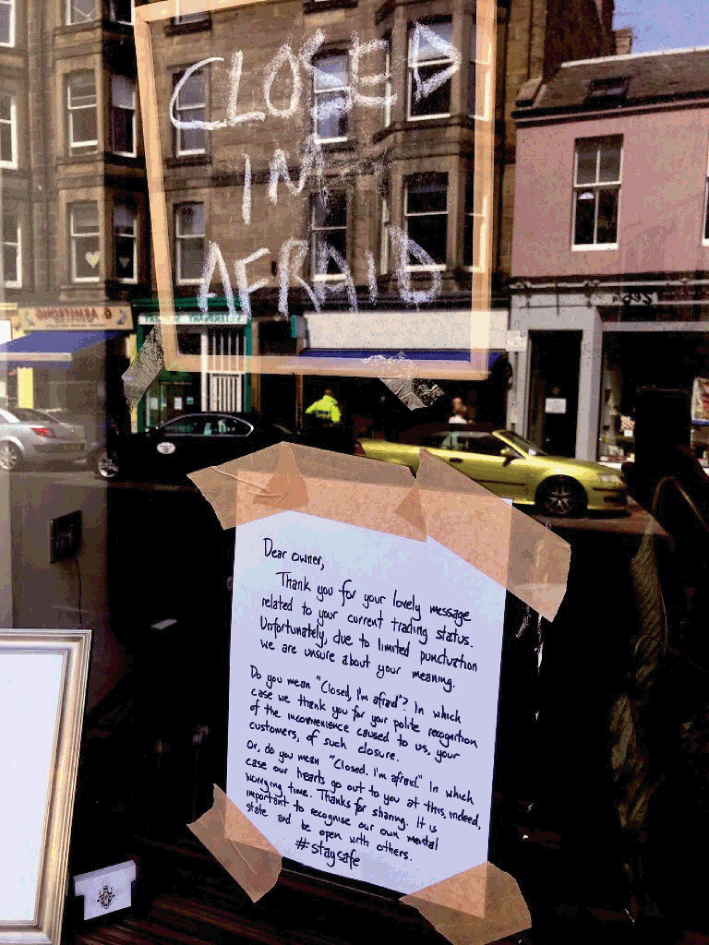 CLOSED
IM
AFRAID
G ARMSTRONG
Dear owner,
Thank you for your lovely message
related to your current trading status.
Unfortunately, due to limited punctuation
we are unsure about your meaning.
Do you mean "Closed, I'm afraid"? In which
case we thank you for your polite recognition
of the inconvenience caused to us, your
customers, of such closure.
Or, do you mean "Closed. I'm afraid." In which
case our hearts go out to you at this, indeed,
worrying time. Thanks for sharing. It is
important to recognise our own mental
state and be open with others.
#staysafe